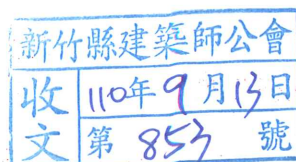 新竹縣建築師公會
收文
110年9月13日
第 853 號